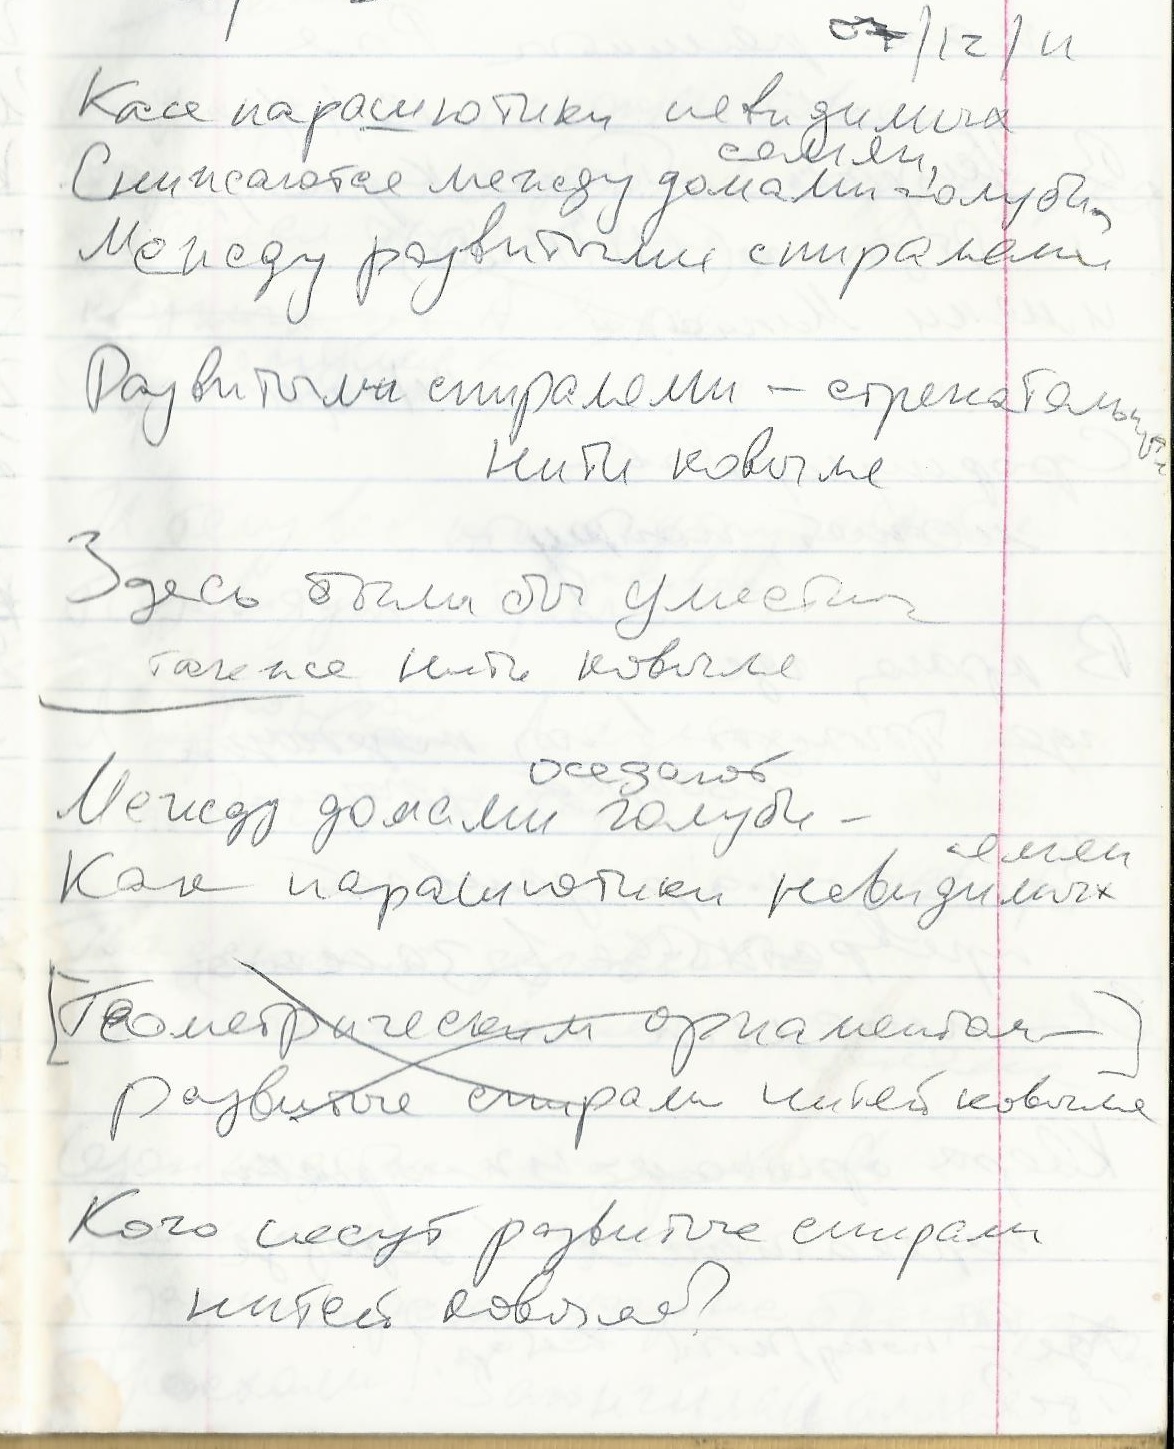 07/12/11
Как парашютики невидимых
семян,
Снижаются между домами голуби,
Между развитыми спиралями
Развитыми спиралями –
нити ковыля
Здесь были бы уместны
также нити ковыля
оседают
Между домами голуби –
семян
Как парашютики невидимых
[Геометрическим орнаментом –]
развитые спирали нитей ковыля
Кого несут развитые спирали
нитей ковыля?